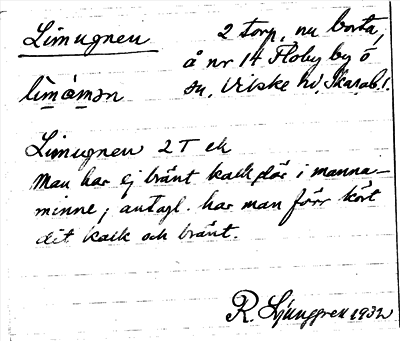 Limugnen 2 torp, nu borta,
å nr 14 Floby by ö
lìmѡ̀mən sn, Vilske hd, Skarab. l.
Limugnen 2 T ek
Man har ej bränt kalk där i manna-
minne; antagl. har man förr kört
dit kalk och bränt.
R. Ljunggren 1932